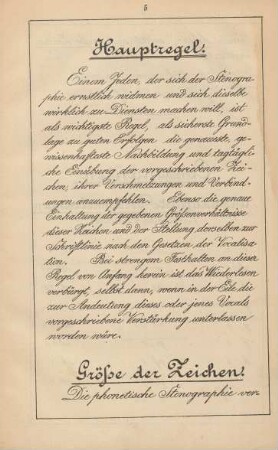 5
Hauptregel!
Einem Jeden, der sich der Stenogra-
phie ernstlich widmen und sich dieselbe
wirklich zu Diensten machen will, ist
als wichtigste Regel, als sicherste Grund-
lage zu guten Erfolgen die genaueste, ge-
wissenhafteste Nachbildung und tagtägli-
che Einübung der vorgeschriebenen Zei-
chen, ihrer Verschmelzungen und Verbind-
ungen anzuempfehlen. Ebenso die genaue
Einhaltung der gegebenen Größenverhältnisse
dieser Zeichen und der Stellung derselben zur
Schriftlinie nach den Gesetzen der Vocalisa-
tion. Bei strengem Festhalten an dieser
Regel von Anfang herein ist das Wiederlesen
verbürgt, selbst dann, wenn in der Eile die
zur Andeutung dieses oder jenes Vocals
vorgeschriebene Verstärkung unterlassen
worden wäre.
Größe der Zeichen!
Die phonetische Stenographie ver-